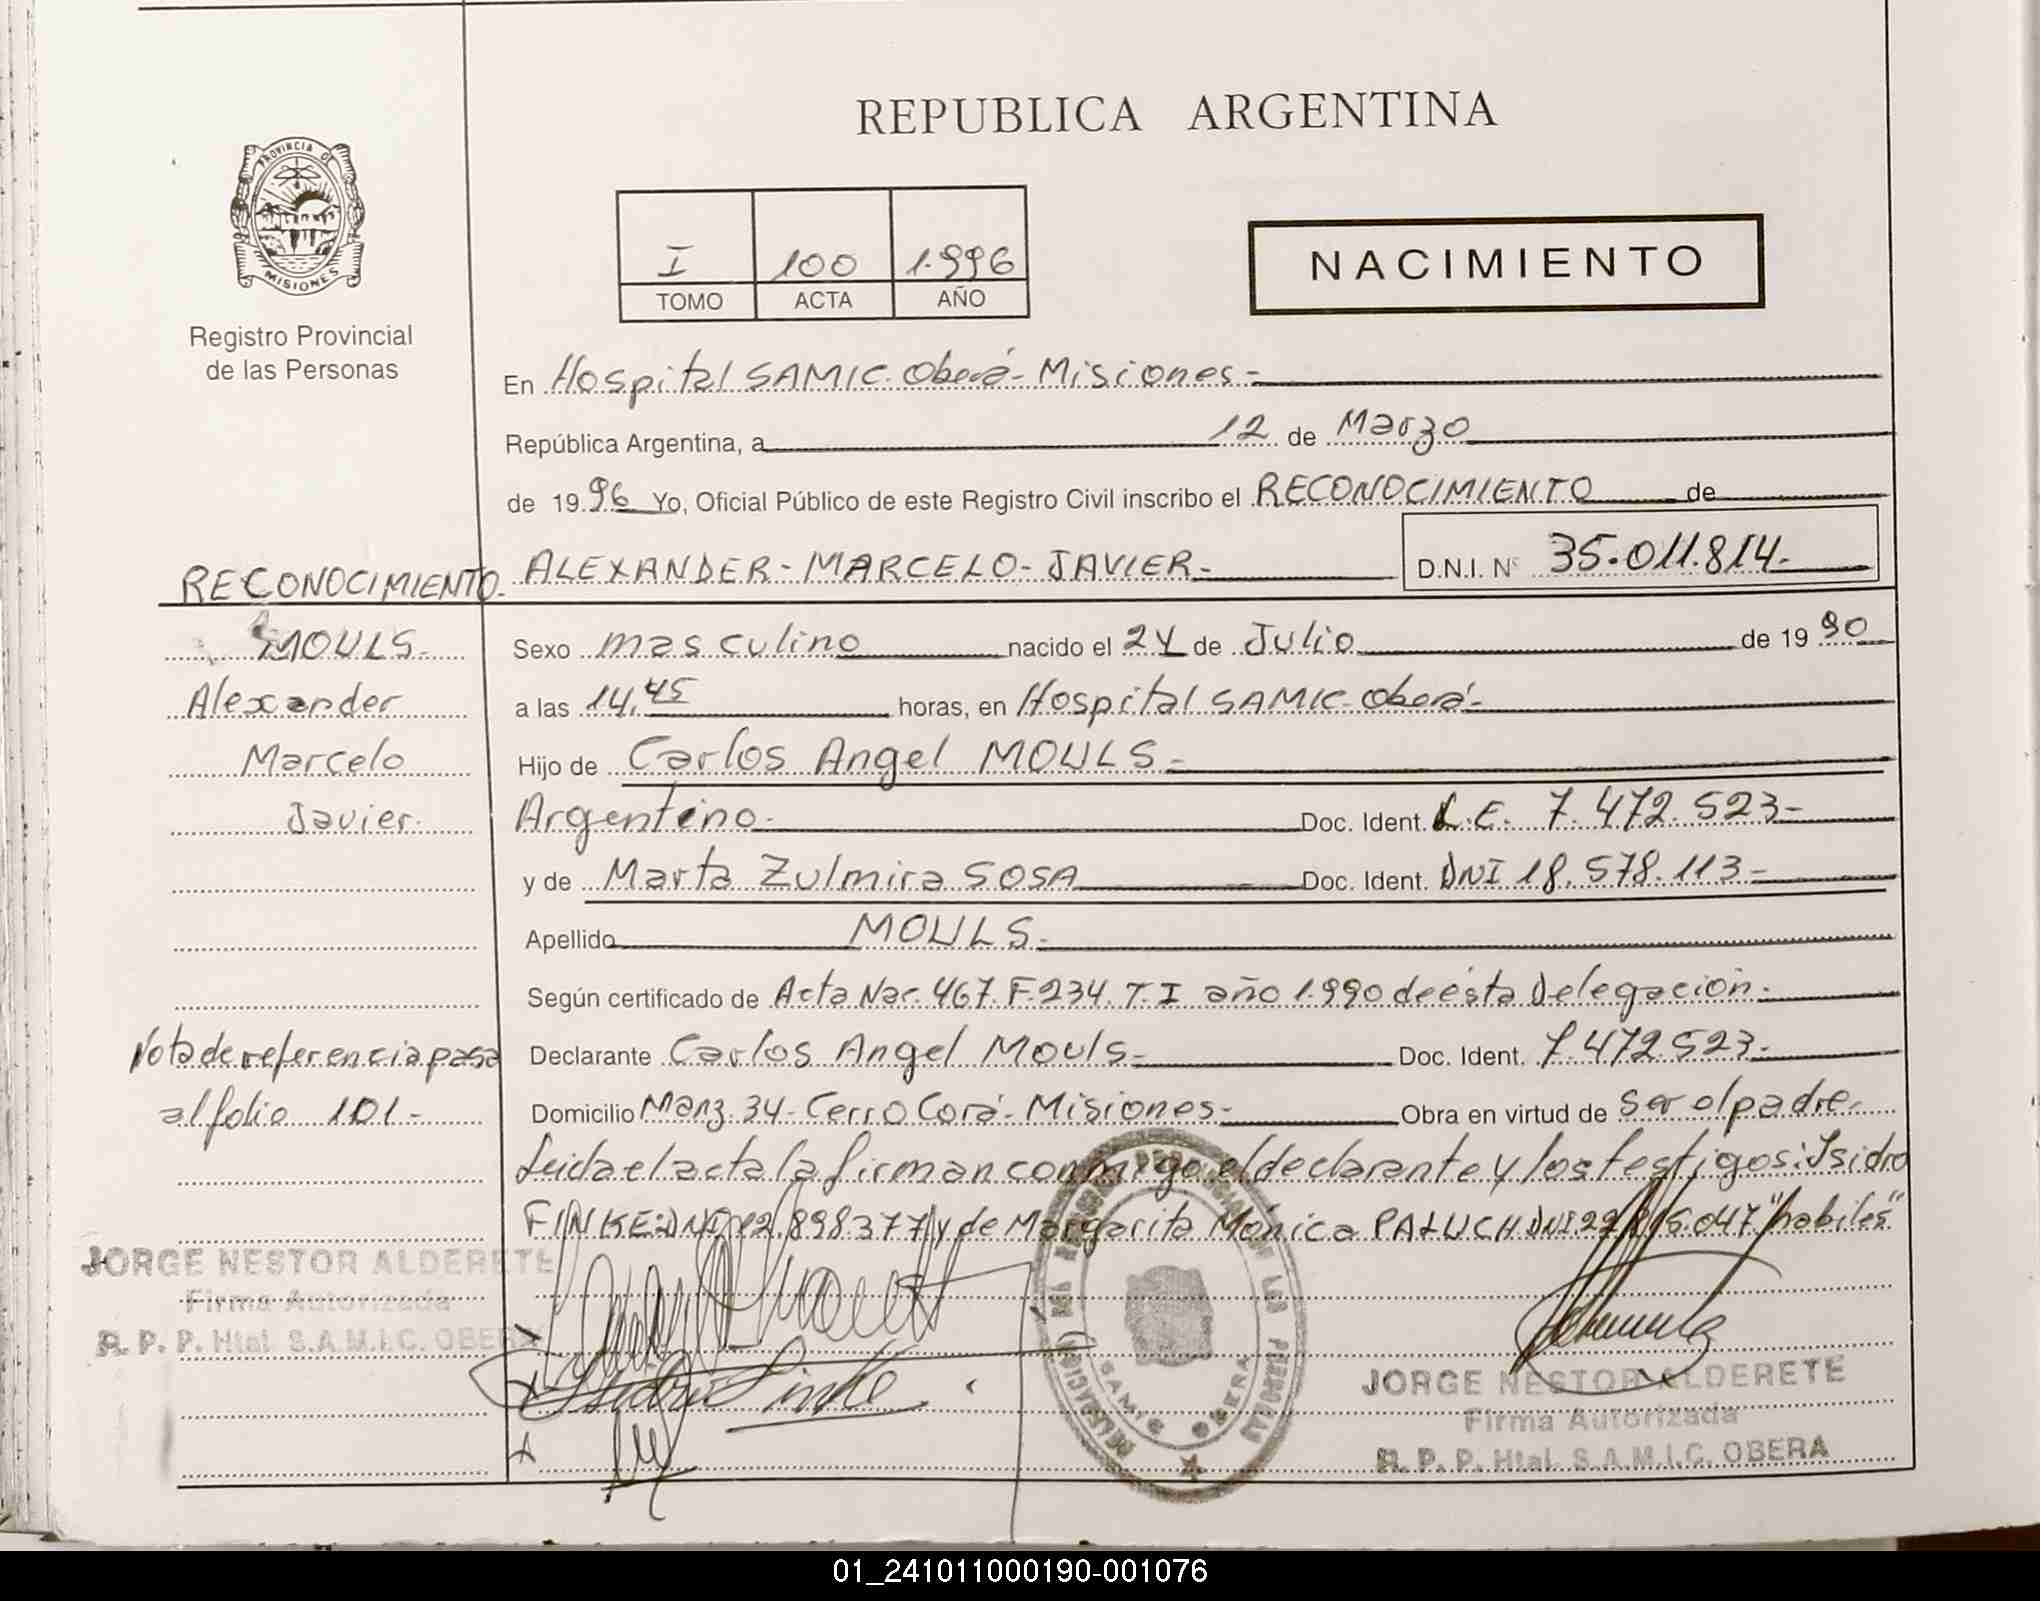 REPUBLICA ARGENTINA
PROVINCIA DE
MISIONES
Registro Provincial
de las Personas
I 100 1.996
TOMO ACTA AÑO
NACIMIENTO
En Hospital SAMIC. Oberá - Misiones -
República Argentina, a 12 de Marzo
de 1996 Yo, Oficial Público de este Registro Civil inscribo el RECONOCIMIENTO de
ALEXANDER - MARCELO - JAVIER - D.N.I. Nº 35.011.814-
RECONOCIMIENTO.
MOULS.
Alexander
Marcelo
Javier.
Nota de referencia pasa
al folio 101-
Sexo masculino nacido el 24 de Julio de 1990
a las 14,45 horas, en Hospital SAMIC - Oberá -
Hijo de Carlos Angel MOULS -
Argentino - Doc. Ident. L.E. 7.472.523-
y de Marta Zulmira SOSA Doc. Ident. DNI 18.578.113-
Apellido MOULS.
Según certificado de Acta Nac. 467 F. 234. T. I año 1.990 de ésta Delegación.
Declarante Carlos Angel Mouls - Doc. Ident. 7.472.523-
Domicilio Manz. 34 - Cerro Corá - Misiones - Obra en virtud de ser el padre.
Leida el acta la firman conmigo el declarante y los testigos: Isidro
FINKE: DNI. 12.898.377 y de Margarita Mónica PALUCH DNI. 22. 5.047 "habiles"
JORGE NESTOR ALDERETE
Firma Autorizada
R. P. P. Htal. S.A.M.I.C. OBERA
Isidro Finke
DELEGACION
SAMIC OBERA
JORGE NESTOR ALDERETE
Firma Autorizada
R. P. P. Htal. S.A.M.I.C. OBERA
01_241011000190-001076